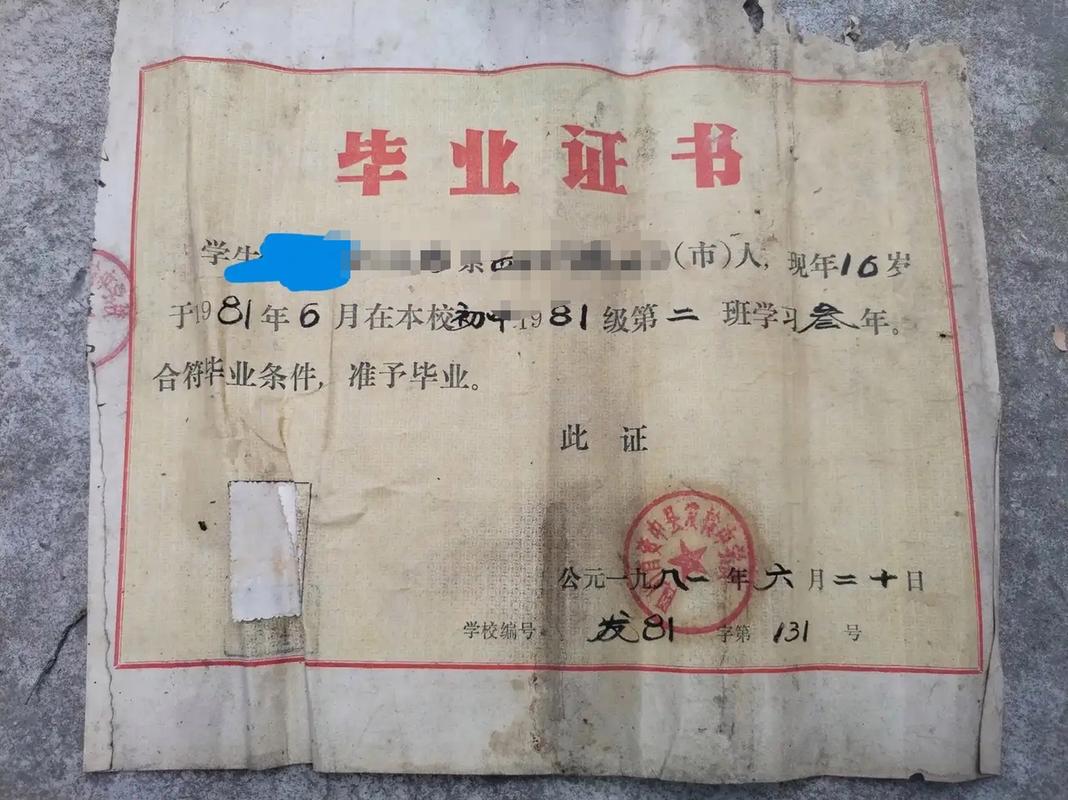 毕业证书
学生 系四 （市）人，现年16岁
于1981年6月在本校初中1981级第二班学习叁年。
合符毕业条件，准予毕业。
此证
公元一九八一年六月二十日
学校编号 发81字第131号